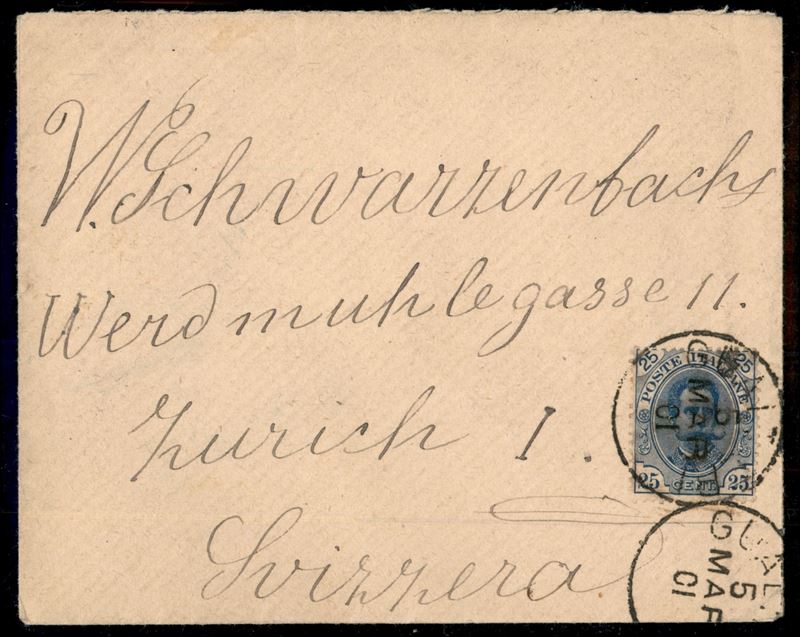 W. Schwarzenbachs
Werdmuhlegasse 11.
Zurich I.
Svizzera
25 25
POSTE ITALIANE
25 CENT. 25
5
MAR
01
GUAL
5
MAR
01